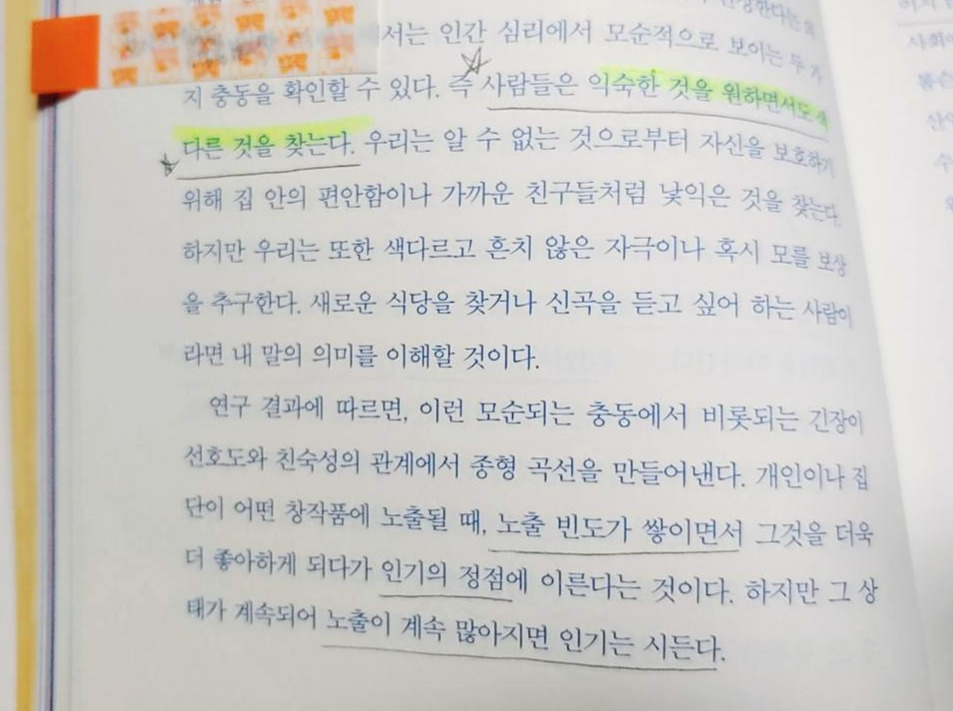 서는 인간 심리에서 모순적으로 보이는 두 가
지 충동을 확인할 수 있다. 즉 사람들은 익숙한 것을 원하면서도 색
다른 것을 찾는다. 우리는 알 수 없는 것으로부터 자신을 보호하기
위해 집 안의 편안함이나 가까운 친구들처럼 낯익은 것을 찾는다.
하지만 우리는 또한 색다르고 흔치 않은 자극이나 혹시 모를 보상
을 추구한다. 새로운 식당을 찾거나 신곡을 듣고 싶어 하는 사람이
라면 내 말의 의미를 이해할 것이다.
연구 결과에 따르면, 이런 모순되는 충동에서 비롯되는 긴장이
선호도와 친숙성의 관계에서 종형 곡선을 만들어낸다. 개인이나 집
단이 어떤 창작품에 노출될 때, 노출 빈도가 쌓이면서 그것을 더욱
더 좋아하게 되다가 인기의 정점에 이른다는 것이다. 하지만 그 상
태가 계속되어 노출이 계속 많아지면 인기는 시든다.